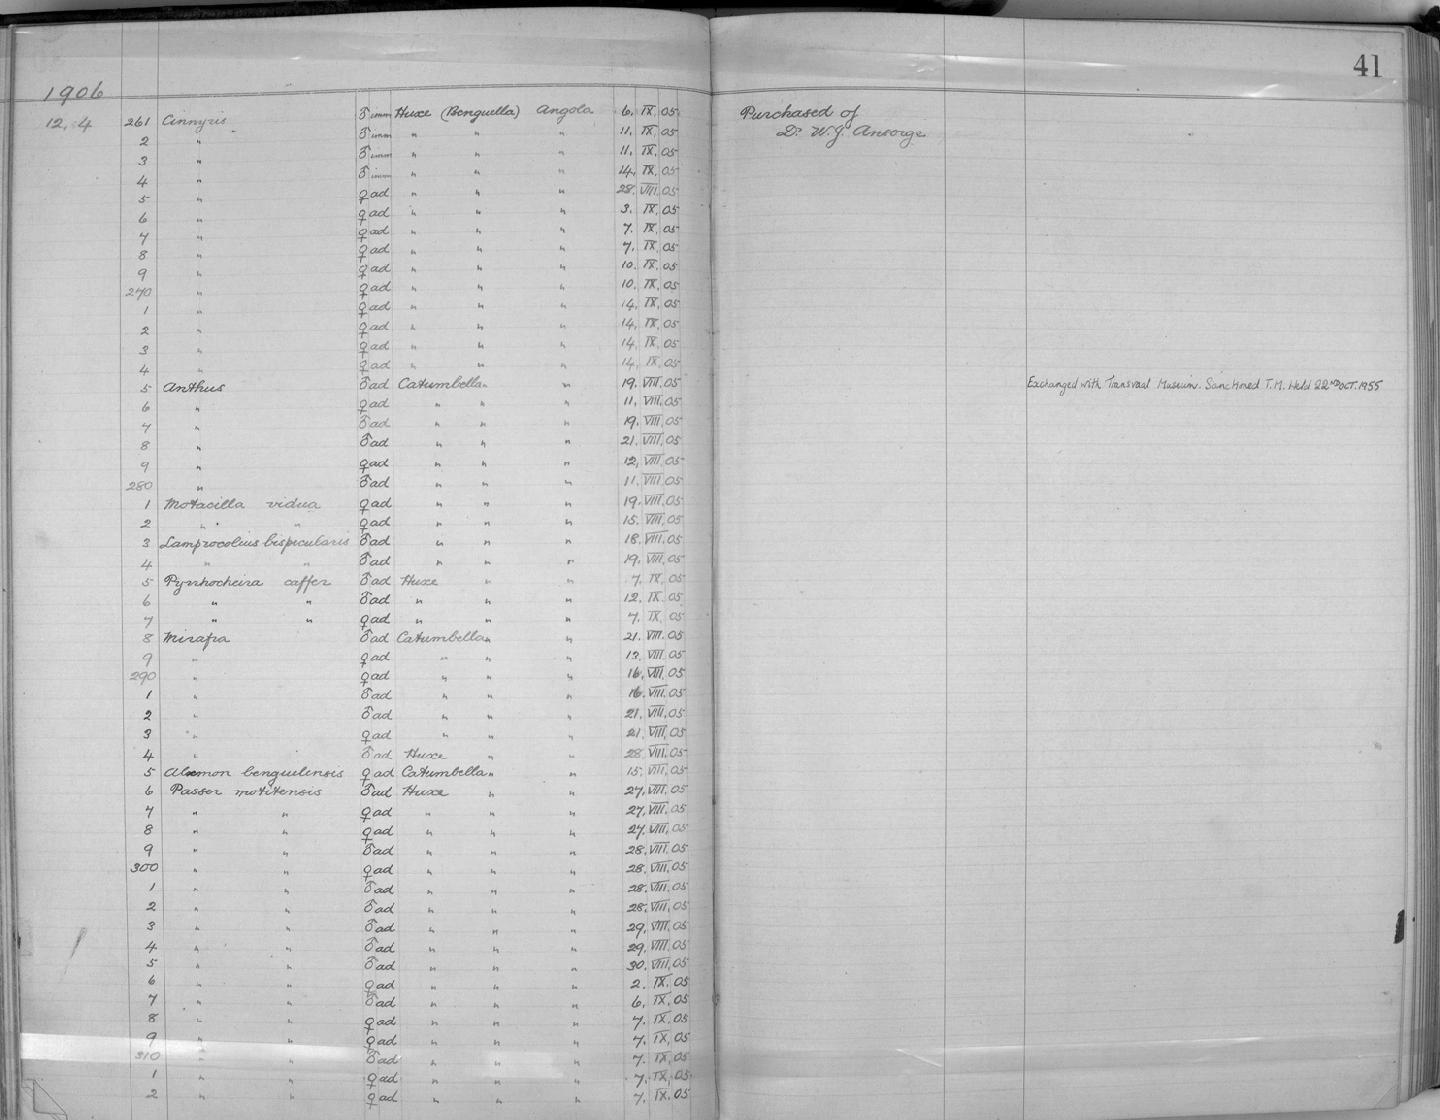 41
1906
12. 4 261 Cinnyris ♂ imm Huxe (Benguella) Angola 6. IX. 05 Purchased of
Dr. W. J. Ansorge
2 " ♂ imm " " " 11. IX. 05
3 " ♂ imm " " " 11. IX. 05
4 " ♂ imm " " " 14. IX. 05
5 " ♀ ad " " " 28. VIII. 05
6 " ♀ ad " " " 3. IX. 05
7 " ♀ ad " " " 7. IX. 05
8 " ♀ ad " " " 7. IX. 05
9 " ♀ ad " " " 10. IX. 05
270 " ♀ ad " " " 10. IX. 05
1 " ♀ ad " " " 14. IX. 05
2 " ♀ ad " " " 14. IX. 05
3 " ♀ ad " " " 14. IX. 05
4 " ♀ ad " " " 14. IX. 05
5 Anthus ♂ ad Catumbella " " 19. VIII. 05 Exchanged with Transvaal Museum. Sanctioned T.M. Held 22ND OCT. 1955
6 " ♀ ad " " " 11. VIII. 05
7 " ♂ ad " " " 19. VIII. 05
8 " ♂ ad " " " 21. VIII. 05
9 " ♀ ad " " " 12. VIII. 05
280 " ♂ ad " " " 11. VIII. 05
1 Motacilla vidua ♀ ad " " " 19. VIII. 05
2 " " ♀ ad " " " 15. VIII. 05
3 Lamprocolius bispecularis ♂ ad " " " 18. VIII. 05
4 " " ♂ ad " " " 19. VIII. 05
5 Pyrrhocheira caffer ♂ ad Huxe " " 7. IX. 05
6 " " ♂ ad " " " 12. IX. 05
7 " " ♀ ad " " " 7. IX. 05
8 Mirafra ♂ ad Catumbella " " 21. VIII. 05
9 " ♀ ad " " " 13. VIII. 05
290 " ♀ ad " " " 16. VIII. 05
1 " ♂ ad " " " 16. VIII. 05
2 " ♂ ad " " " 21. VIII. 05
3 " ♀ ad " " " 21. VIII. 05
4 " ♂ ad Huxe " " 28. VIII. 05
5 Alaemon benguelensis ♀ ad Catumbella " " 15. VIII. 05
6 Passer motitensis ♂ ad Huxe " " 27. VIII. 05
7 " " ♀ ad " " " 27. VIII. 05
8 " " ♀ ad " " " 27. VIII. 05
9 " " ♂ ad " " " 28. VIII. 05
300 " " ♀ ad " " " 28. VIII. 05
1 " " ♂ ad " " " 28. VIII. 05
2 " " ♂ ad " " " 28. VIII. 05
3 " " ♂ ad " " " 29. VIII. 05
4 " " ♂ ad " " " 29. VIII. 05
5 " " ♂ ad " " " 30. VIII. 05
6 " " ♀ ad " " " 2. IX. 05
7 " " ♂ ad " " " 6. IX. 05
8 " " ♀ ad " " " 7. IX. 05
9 " " ♀ ad " " " 7. IX. 05
310 " " ♂ ad " " " 7. IX. 05
1 " " ♀ ad " " " 7. IX. 05
2 " " ♀ ad " " " 7. IX. 05